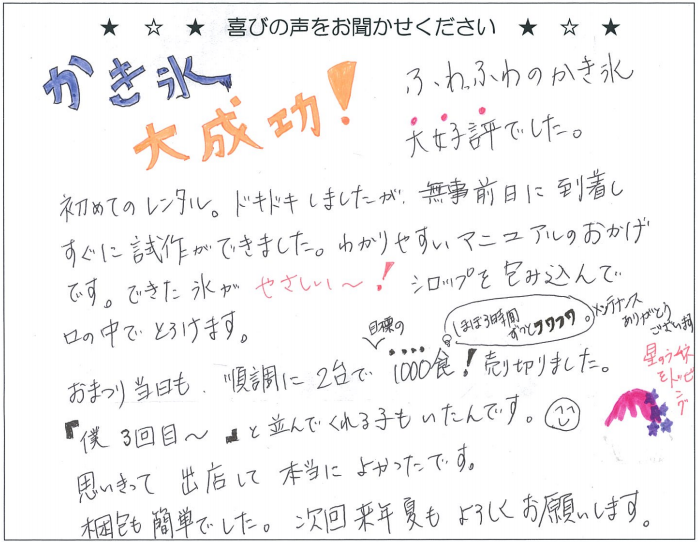 ★ ☆ ★ 喜びの声をお聞かせください ★ ☆ ★
かき氷
大成功!
ふわふわのかき氷
大好評でした。
初めてのレンタル。ドキドキしましたが、無事前日に到着し
すぐに試作ができました。わかりやすいマニュアルのおかげ
です。できた氷が やさしい〜! シロップを包み込んで
口の中でとろけます。
ほぼ3時間
ずっとフワフワ。
メンテナンス
ありがとう
ございます
目標の
おまつり当日も、順調に2台で1000食!売り切りました。
星のうせん
をトッピ
ング
『僕3回目〜』と並んでくれる子もいたんです。
思いきって 出店して 本当に よかったです。
梱包も簡単でした。次回来年夏も よろしくお願いします。